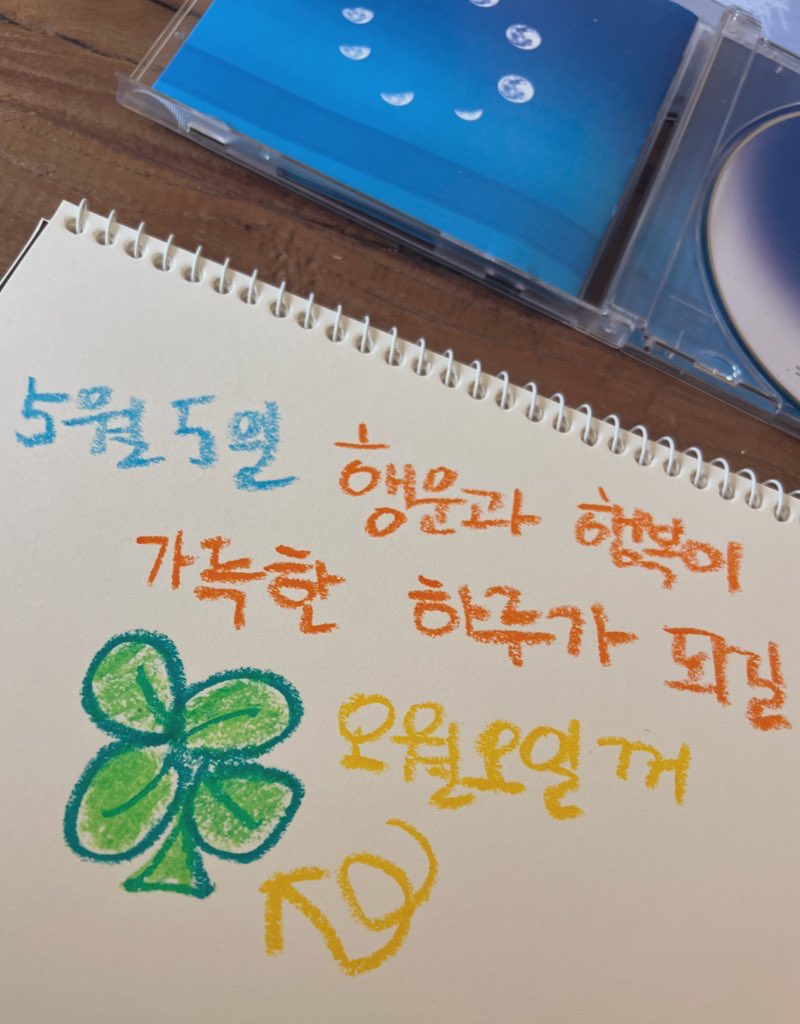 5월 5일 행운과 행복이
가득한 하루가 되길
오월오일 꺼